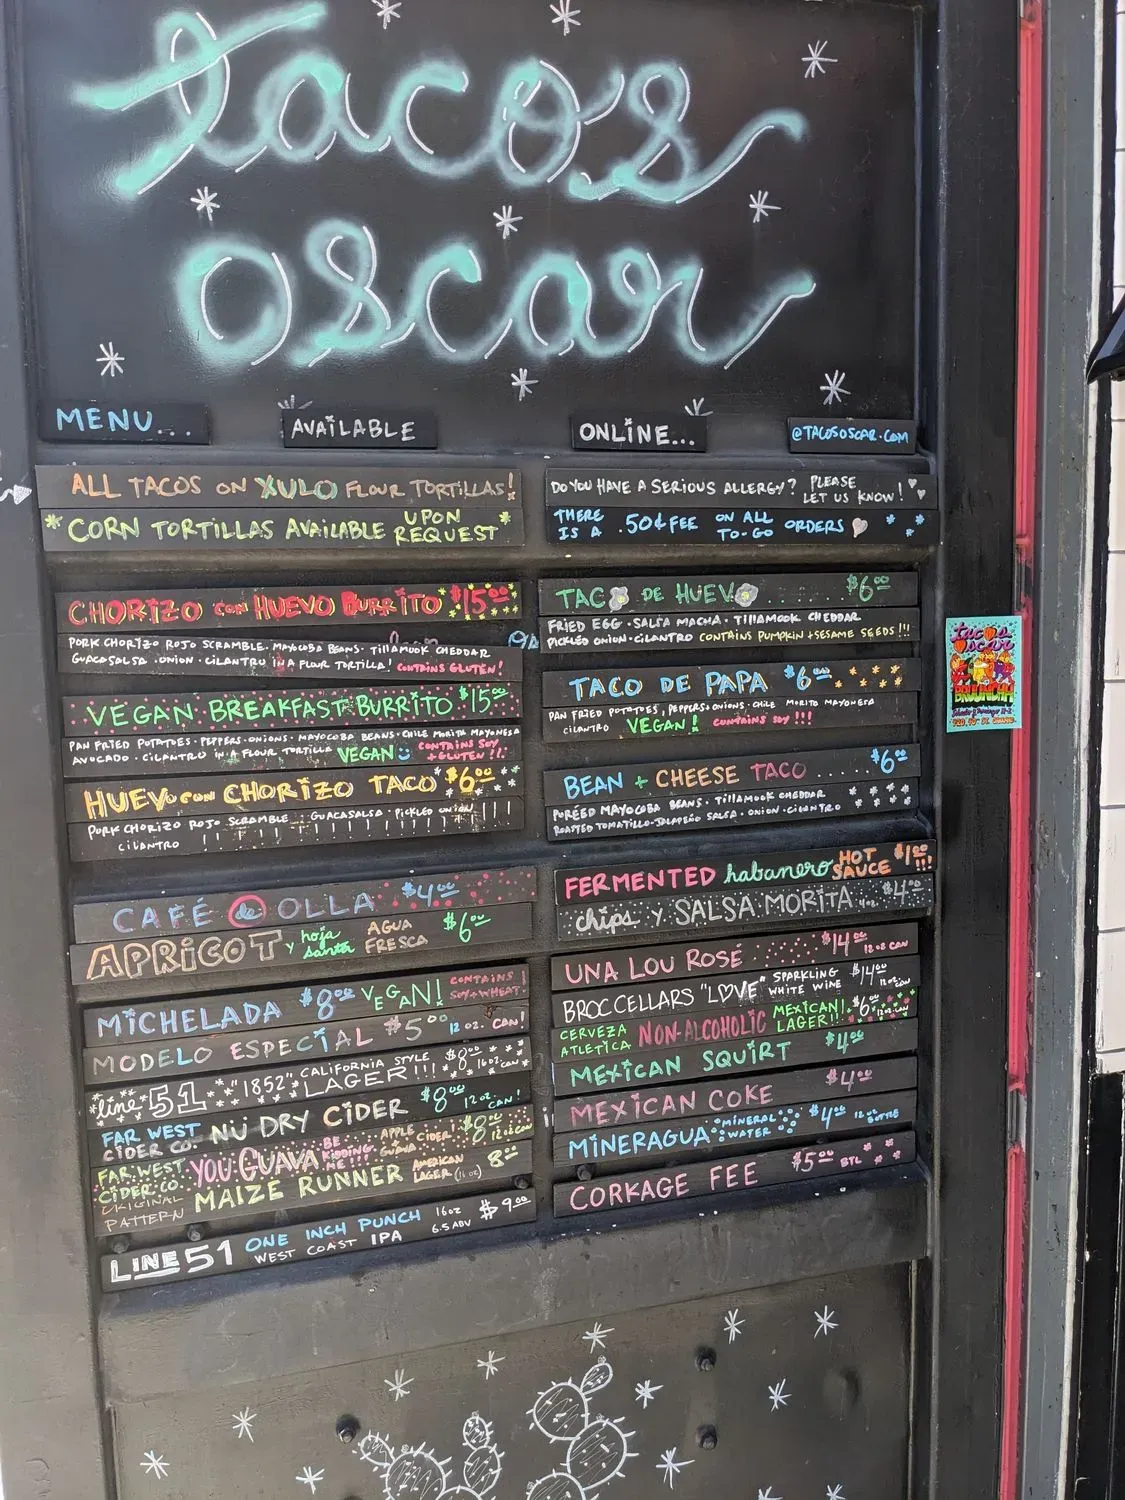 tacos
oscar
MENU...
AVAILABLE
ONLINE...
@TACOSOSCAR.COM
ALL TACOS ON XULO FLOUR TORTILLAS!
*CORN TORTILLAS AVAILABLE UPON REQUEST*
DO YOU HAVE A SERIOUS ALLERGY? PLEASE LET US KNOW!
THERE IS A .50¢ FEE ON ALL TO-GO ORDERS
CHORIZO con HUEVO BURRITO $15.00
PORK CHORIZO ROJO SCRAMBLE. MAYOCOBA BEANS. TILLAMOOK CHEDDAR
GUACASALSA. ONION. CILANTRO IN A FLOUR TORTILLA! CONTAINS GLUTEN!
VEGAN BREAKFAST BURRITO $15.00
PAN FRIED POTATOES. PEPPERS. ONIONS. MAYOCOBA BEANS. CHILE MORITA MAYONESA
AVOCADO. CILANTRO IN A FLOUR TORTILLA VEGAN CONTAINS SOY + GLUTEN!!
HUEVO CON CHORIZO TACO $6.00
PORK CHORIZO ROJO SCRAMBLE GUACASALSA. PICKLED ONION
CILANTRO
TACO DE HUEVO $6.00
FRIED EGG. SALSA MACHA. TILLAMOOK CHEDDAR
PICKLED ONION. CILANTRO CONTAINS PUMPKIN + SESAME SEEDS!!!
TACO DE PAPA $6.00
PAN FRIED POTATOES, PEPPERS + ONIONS. CHILE MORITA MAYONESA
CILANTRO VEGAN! CONTAINS SOY!!!
BEAN + CHEESE TACO ...... $6.00
PUREED MAYOCOBA BEANS. TILLAMOOK CHEDDAR
ROASTED TOMATILLO-JALAPEÑO SALSA. ONION. CILANTRO
CAFÉ de OLLA $4.00
APRICOT y hoja santa AGUA FRESCA $6.00
FERMENTED habanero HOT SAUCE $1.00!!!
chips y SALSA MORITA $4.00
MICHELADA $8.00 VEGAN! CONTAINS SOY + WHEAT!
MODELO ESPECIAL $5.00 12 OZ. CAN!
line 51 "1852" CALIFORNIA STYLE LAGER!!! $8.00 16 OZ CAN
FAR WEST CIDER CO. NU DRY CIDER $8.00 12 OZ CAN!
FAR WEST CIDER CO. YOU GUAVA BE KIDDING ME!!! APPLE GUAVA CIDER! $8.00 12 OZ CAN
ORIGINAL PATTERN MAIZE RUNNER AMERICAN LAGER (16 OZ) 8.00
LINE 51 ONE INCH PUNCH WEST COAST IPA 16 OZ 6.5 ABV $9.00
UNA LOU ROSÉ $14.00 12 OZ CAN
BROC CELLARS "LOVE" SPARKLING WHITE WINE $14.00 12 OZ CAN
CERVEZA ATLETICA NON-ALCOHOLIC MEXICAN! LAGER!!! $6.00 12 OZ CAN
MEXICAN SQUIRT $4.00
MEXICAN COKE $4.00
MINERAGUA MINERAL WATER $4.00 12 OZ BOTTLE
CORKAGE FEE $5.00 BTL
tacos
oscar
BRUUNCH!